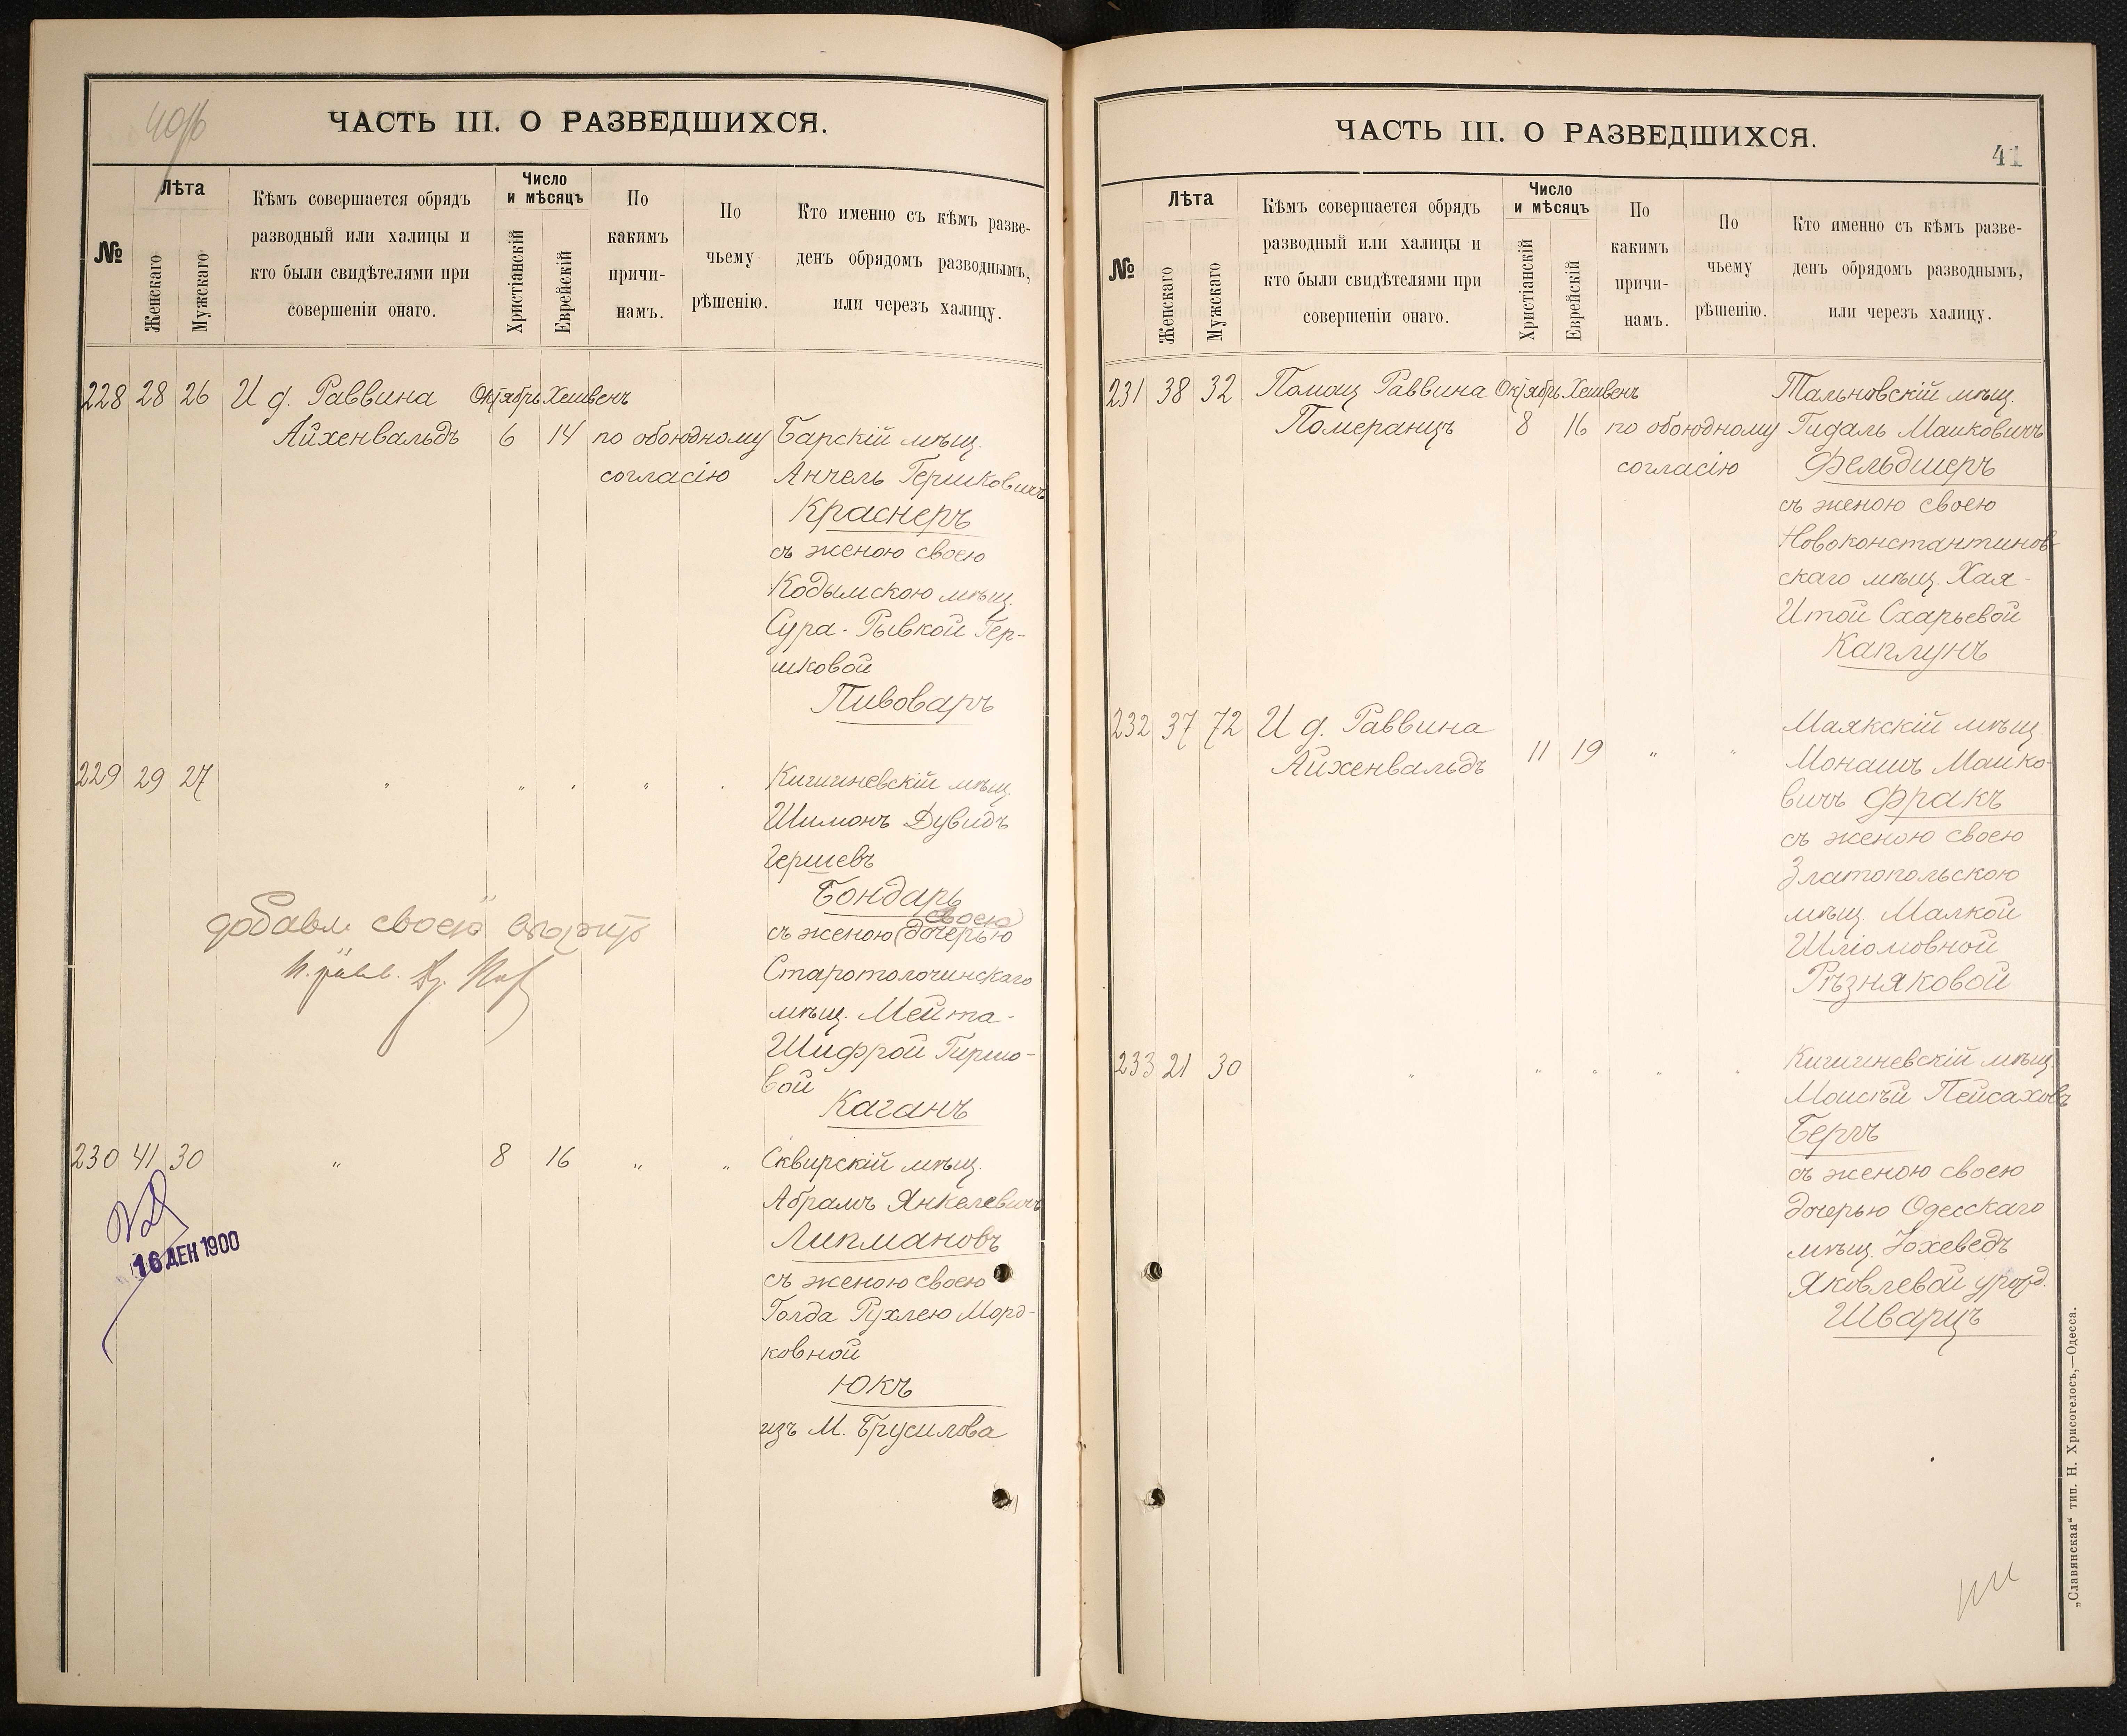 ЧАСТЬ III. О РАЗВЕДШИХСЯ.
№
Лѣта
Женскаго
Мужскаго
Кѣмъ совершается обрядъ
разводный или халицы и
кто были свидѣтелями при
совершеніи онаго.
Число
и мѣсяцъ
Христіанскій
Еврейскій
По
какимъ
причи-
намъ.
По
чьему
рѣшенію.
Кто именно съ кѣмъ разве-
денъ обрядомъ разводнымъ,
или черезъ халицу.
228 28 26 И д. Раввина Октябрь Хешвенъ
Айхенвальдъ 6 14 по обоюдному Барскій мѣщ.
согласію Анчель Гершковичъ
Краснеръ
съ женою своею
Кодымскою мѣщ.
Сура-Рывкой Гер-
шковой
Пивоваръ
229 29 27 " " " " " Кишиневскій мѣщ.
Шимонъ Дувидъ
Гершевъ
Бондарь
своею
съ женою (дочерью
Старотолочинскаго
мѣщ. Мейта-
Шифрой Гиршо-
вой
Каганъ
добавл. своею
230 41 30 " 8 16 " " Сквирскій мѣщ.
Абрамъ Янкелевичъ
Липмановъ
съ женою своею
Голда Рухлею Морд-
ковной
Юкъ
изъ М. Брусилова
16 ДЕК 1900
ЧАСТЬ III. О РАЗВЕДШИХСЯ.
41
№
Лѣта
Женскаго
Мужскаго
Кѣмъ совершается обрядъ
разводный или халицы и
кто были свидѣтелями при
совершеніи онаго.
Число
и мѣсяцъ
Христіанскій
Еврейскій
По
какимъ
причи-
намъ.
По
чьему
рѣшенію.
Кто именно съ кѣмъ разве-
денъ обрядомъ разводнымъ,
или черезъ халицу.
231 38 32 Помощ Раввина Октябрь Хешвенъ Тальновскій мѣщ.
Померанцъ 8 16 по обоюдному Гидаль Машковичъ
согласію Фельдшеръ
съ женою своею
Новоконстантинов-
скаго мѣщ. Хая-
Итой Схарьевой
Каплунъ
232 37 72 И д. Раввина Маякскій мѣщ.
Айхенвальдъ 11 19 " " Монашъ Машко-
вичъ Фракъ
съ женою своею
Златопольскою
мѣщ. Малкой
Шліомовной
Рѣзняковой
233 21 30 " " " " " Кишиневскій мѣщ.
Моисѣй Пейсаховъ
Бергъ
съ женою своею
дочерью Одесскаго
мѣщ. Іохеведъ
Яковлевой урожд.
Шварцъ
„Славянская“ тип. Н. Хрисогелосъ,—Одесса.